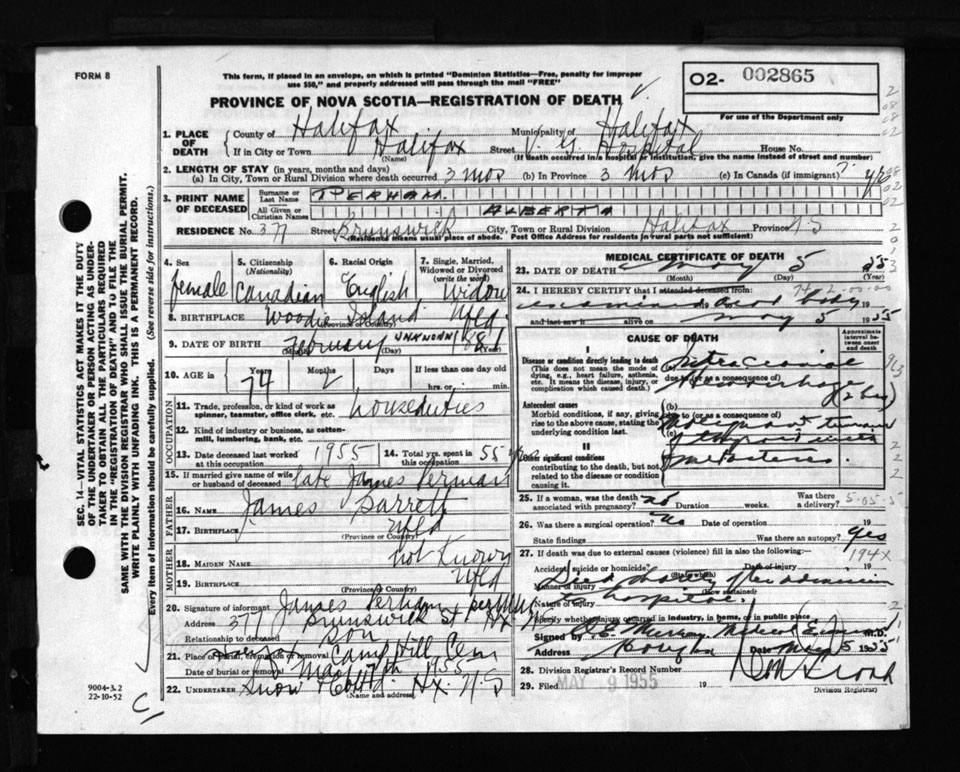 FORM 8
This form, if placed in an envelope, on which is printed "Dominion Statistics—Free, penalty for improper
use $50," and properly addressed will pass through the mail "FREE"
O2- 002865
For use of the Department only
PROVINCE OF NOVA SCOTIA—REGISTRATION OF DEATH
1. PLACE OF DEATH
County of Halifax Municipality of Halifax
If in City or Town Halifax Street V. G. Hospital House No.
(Name) (If death occurred in a hospital or institution, give the name instead of street and number)
2. LENGTH OF STAY (in years, months and days)
(a) In City, Town or Rural Division where death occurred 3 mos (b) In Province 3 mos (c) In Canada (if immigrant)
3. PRINT NAME OF DECEASED
Surname or Last Name PERHAM
All Given or Christian Names ALBERTA
RESIDENCE No. 377 Street Brunswick City, Town or Rural Division Halifax Province N S
(Residence means usual place of abode. Post Office Address for residents in rural parts not sufficient)
4. Sex female
5. Citizenship (Nationality) Canadian
6. Racial Origin English
7. Single, Married, Widowed or Divorced (write the word) Widow
8. BIRTHPLACE Island Nfld
(Province or Country)
9. DATE OF BIRTH February UNKNOWN 1881
(Month) (Day)
10. AGE in Years Months Days If less than one day
74 2 hrs. or min.
OCCUPATION
11. Trade, profession, or kind of work as spinner, teamster, office clerk, etc. house duties
12. Kind of industry or business, as cotton-mill, lumbering, bank, etc.
13. Date deceased last worked at this occupation 1955
14. Total yrs. spent in this occupation 55 yrs
15. If married give name of wife or husband of deceased late James Perham
FATHER
16. NAME James Barrett
17. BIRTHPLACE Nfld
(Province or Country)
MOTHER
18. MAIDEN NAME not Known
19. BIRTHPLACE Nfld
(Province or Country)
20. Signature of informant James Perham
Address 377 Brunswick St Hx
Relationship to deceased son
21. Place of burial, cremation or removal Camp Hill Cem
Date of burial or removal May 7th 1955
22. UNDERTAKER Snow Hx. N.S
(Name and address)
MEDICAL CERTIFICATE OF DEATH
23. DATE OF DEATH May 5 1955
(Month) (Day) (Year)
24. I HEREBY CERTIFY that I attended deceased from:
examined dead body 19
and last saw h alive on May 5 1955
CAUSE OF DEATH
Approximate interval between onset and death
I
Disease or condition directly leading to death
(This does not mean the mode of dying, e.g., heart failure, asthenia, etc. It means the disease, injury, or complication which caused death.)
(a) Intra Cranial
due to (or as a consequence of)
Antecedent causes
Morbid conditions, if any, giving rise to the above cause, stating the underlying condition last.
(b)
due to (or as a consequence of)
(c)
II
Other significant conditions
contributing to the death, but not related to the disease or condition causing it.
25. If a woman, was the death associated with pregnancy? no Duration weeks. Was there a delivery?
26. Was there a surgical operation? No Date of operation 19
State findings Was there an autopsy? yes
27. If death was due to external causes (violence) fill in also the following:—
Accident, suicide or homicide? Date of injury 19
(State which)
Manner of injury Died shortly after admission
(How sustained)
Nature of injury to hospital.
Specify whether injury occurred in industry, in home, or in public place
Signed by M.D.
Address Date May 5 1955
28. Division Registrar's Record Number
29. Filed MAY 9 1955 19
Division Registrar
SEC. 14—VITAL STATISTICS ACT MAKES IT THE DUTY
OF THE UNDERTAKER OR PERSON ACTING AS UNDER-
TAKER TO OBTAIN ALL THE PARTICULARS REQUIRED
IN THE "REGISTRATION OF DEATH" AND TO FILE THE
SAME WITH THE DIVISION REGISTRAR WHO SHALL ISSUE THE BURIAL PERMIT.
WRITE PLAINLY WITH UNFADING INK. THIS IS A PERMANENT RECORD.
Every item of information should be carefully supplied. (See reverse side for instructions.)
9004-3.2
22-10-52
C